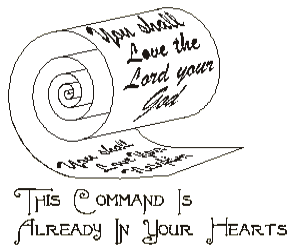 You shall
Love the
Lord your
God
You shall
Love Your
Neighbor
This Command Is
Already In Your Hearts